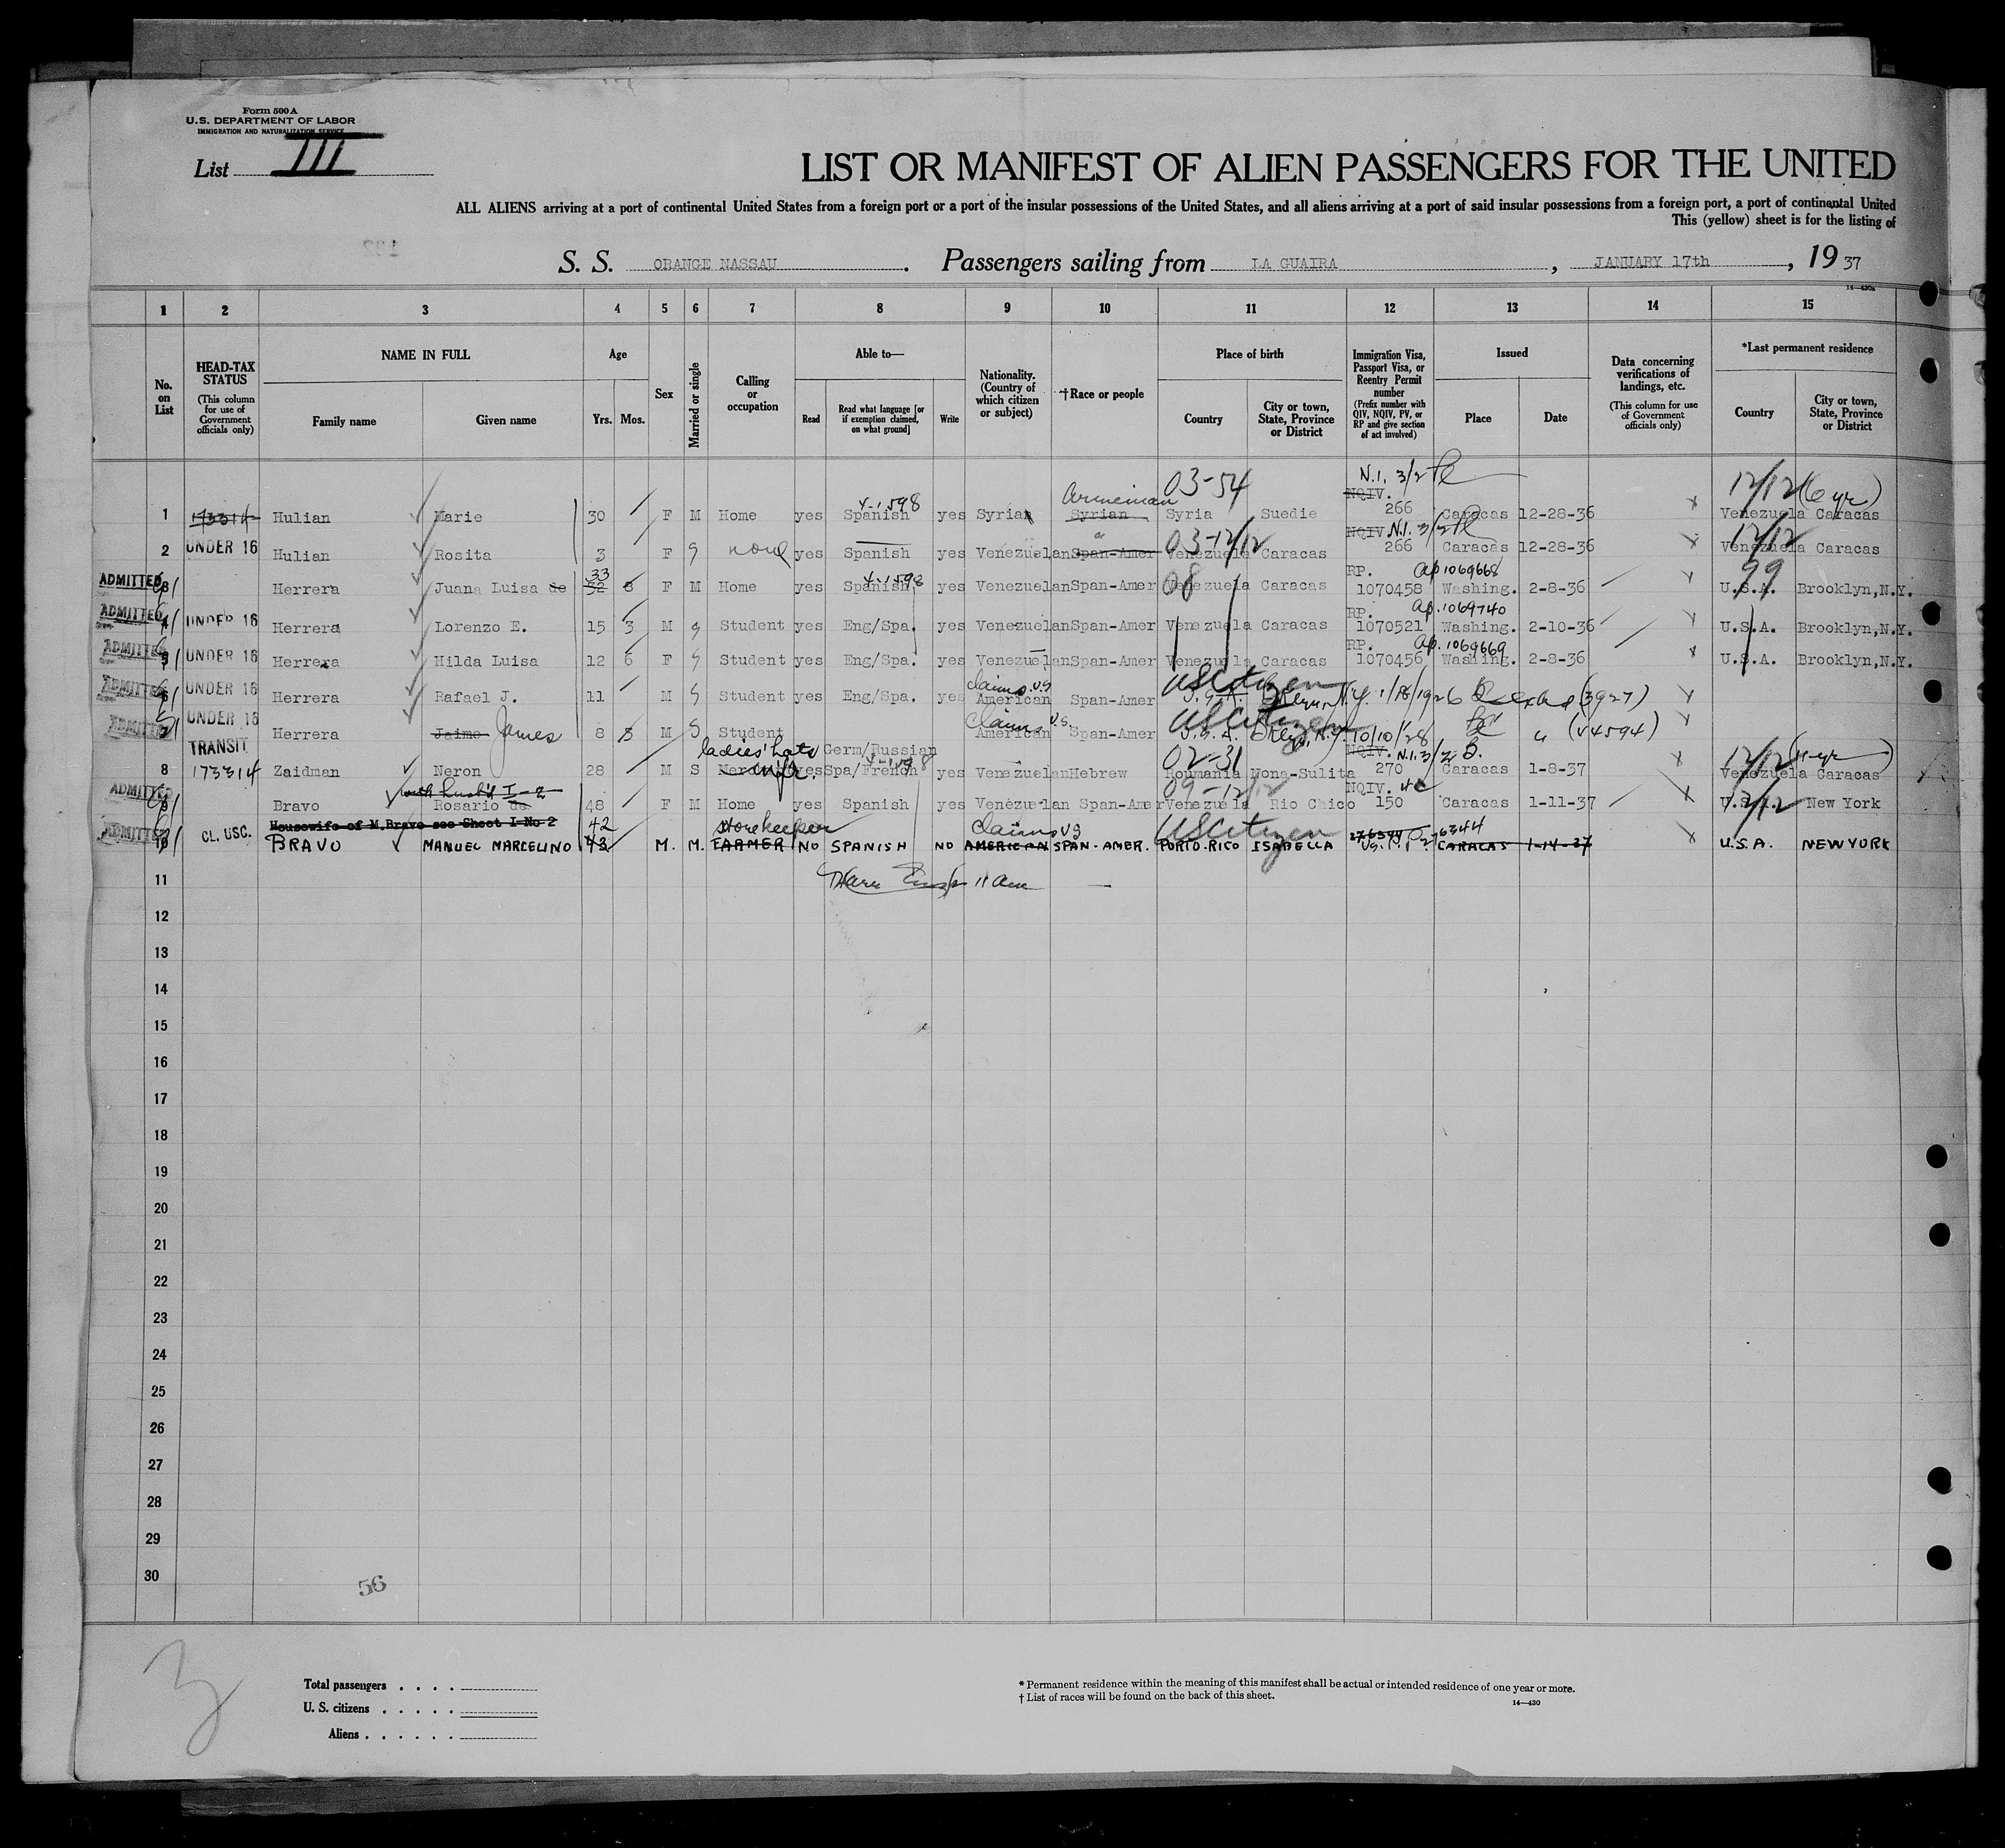 Form 500 A
U. S. DEPARTMENT OF LABOR
IMMIGRATION AND NATURALIZATION SERVICE
List III
LIST OR MANIFEST OF ALIEN PASSENGERS FOR THE UNITED
ALL ALIENS arriving at a port of continental United States from a foreign port or a port of the insular possessions of the United States, and all aliens arriving at a port of said insular possessions from a foreign port, a port of continental United
This (yellow) sheet is for the listing of
S. S. ORANGE NASSAU. Passengers sailing from LA GUAIRA, JANUARY 17th, 19 37
14—430a
1 2 3 4 5 6 7 8 9 10 11 12 13 14 15
No. on List
HEAD-TAX STATUS (This column for use of Government officials only)
NAME IN FULL
Family name
Given name
Age
Yrs. Mos.
Sex
Married or single
Calling or occupation
Able to—
Read
Read what language [or if exemption claimed, on what ground]
Write
Nationality. (Country of which citizen or subject)
†Race or people
Place of birth
Country
City or town, State, Province or District
Immigration Visa, Passport Visa, or Reentry Permit number (Prefix number with QIV, NQIV, PV, or RP and give section of act involved)
Issued
Place
Date
Data concerning verifications of landings, etc. (This column for use of Government officials only)
*Last permanent residence
Country
City or town, State, Province or District
N.I. 3/2
03-54
12/12 (6 yr)
4-1598
Armenian
NQIV.
1 173314 Hulian Marie 30 F M Home yes Spanish yes Syrian Syrian Syria Suedie 266 Caracas 12-28-36 Venezuela Caracas
NQIV N.I. 3/2
03-12/12
12/12
2 UNDER 16 Hulian Rosita 3 F S none yes Spanish yes Venezuelan Span-Amer Venezuela Caracas 266 Caracas 12-28-36 Venezuela Caracas
33
4-1598
08
RP. Ap 1069668
99
ADMITTED 3 Herrera Juana Luisa de 32 8 F M Home yes Spanish yes Venezuelan Span-Amer Venezuela Caracas 1070458 Washing. 2-8-36 U.S.A. Brooklyn,N.Y.
RP. Ap. 1069740
ADMITTED 4 UNDER 16 Herrera Lorenzo E. 15 3 M S Student yes Eng/Spa. yes Venezuelan Span-Amer Venezuela Caracas 1070521 Washing. 2-10-36 U.S.A. Brooklyn,N.Y.
RP. Ap. 1069669
ADMITTED 5 UNDER 16 Herrera Hilda Luisa 12 6 F S Student yes Eng/Spa. yes Venezuelan Span-Amer Venezuela Caracas 1070456 Washing. 2-8-36 U.S.A. Brooklyn,N.Y.
claims U.S.
US Citizen
ADMITTED 6 UNDER 16 Herrera Rafael J. 11 M S Student yes Eng/Spa. yes American Span-Amer U.S.A. Bklyn N.Y. 1/18/1926 (3927)
claims U.S.
US Citizen
ADMITTED 7 UNDER 16 Herrera Jaime James 8 8 M S Student American Span-Amer U.S.A. Bklyn, N.Y. 10/10/28 " (44594)
ladies' hats Germ/Russian
02-31
NQIV. N.I. 3/2
12/12
8 TRANSIT 173314 Zaidman Neron 28 M S mfr. yes Spa/French yes Venezuelan Hebrew Roumania Nona-Sulita 270 Caracas 1-8-37 Venezuela Caracas
with husb'd I-2
09-12/12
NQIV. 4c
ADMITTED 9 Bravo Rosario de 48 F M Home yes Spanish yes Venezuelan Span-Amer Venezuela Rio Chico 150 Caracas 1-11-37 U.S.A. New York
Housewife of M.Bravo see Sheet I-No 2
42
Storekeeper
Claims US
US Citizen
276344
ADMITTED 10 CL. USC. BRAVO MANUEL MARCELINO 43 M. M. FARMER NO SPANISH NO AMERICAN SPAN-AMER. PORTO-RICO ISABELLA CARACAS 1-14-37 U.S.A. NEW YORK
11 11 am
12
13
14
15
16
17
18
19
20
21
22
23
24
25
26
27
28
29
30
56
3
Total passengers . . . .
U. S. citizens . . . . .
Aliens . . . . . .
* Permanent residence within the meaning of this manifest shall be actual or intended residence of one year or more.
† List of races will be found on the back of this sheet.
14—430